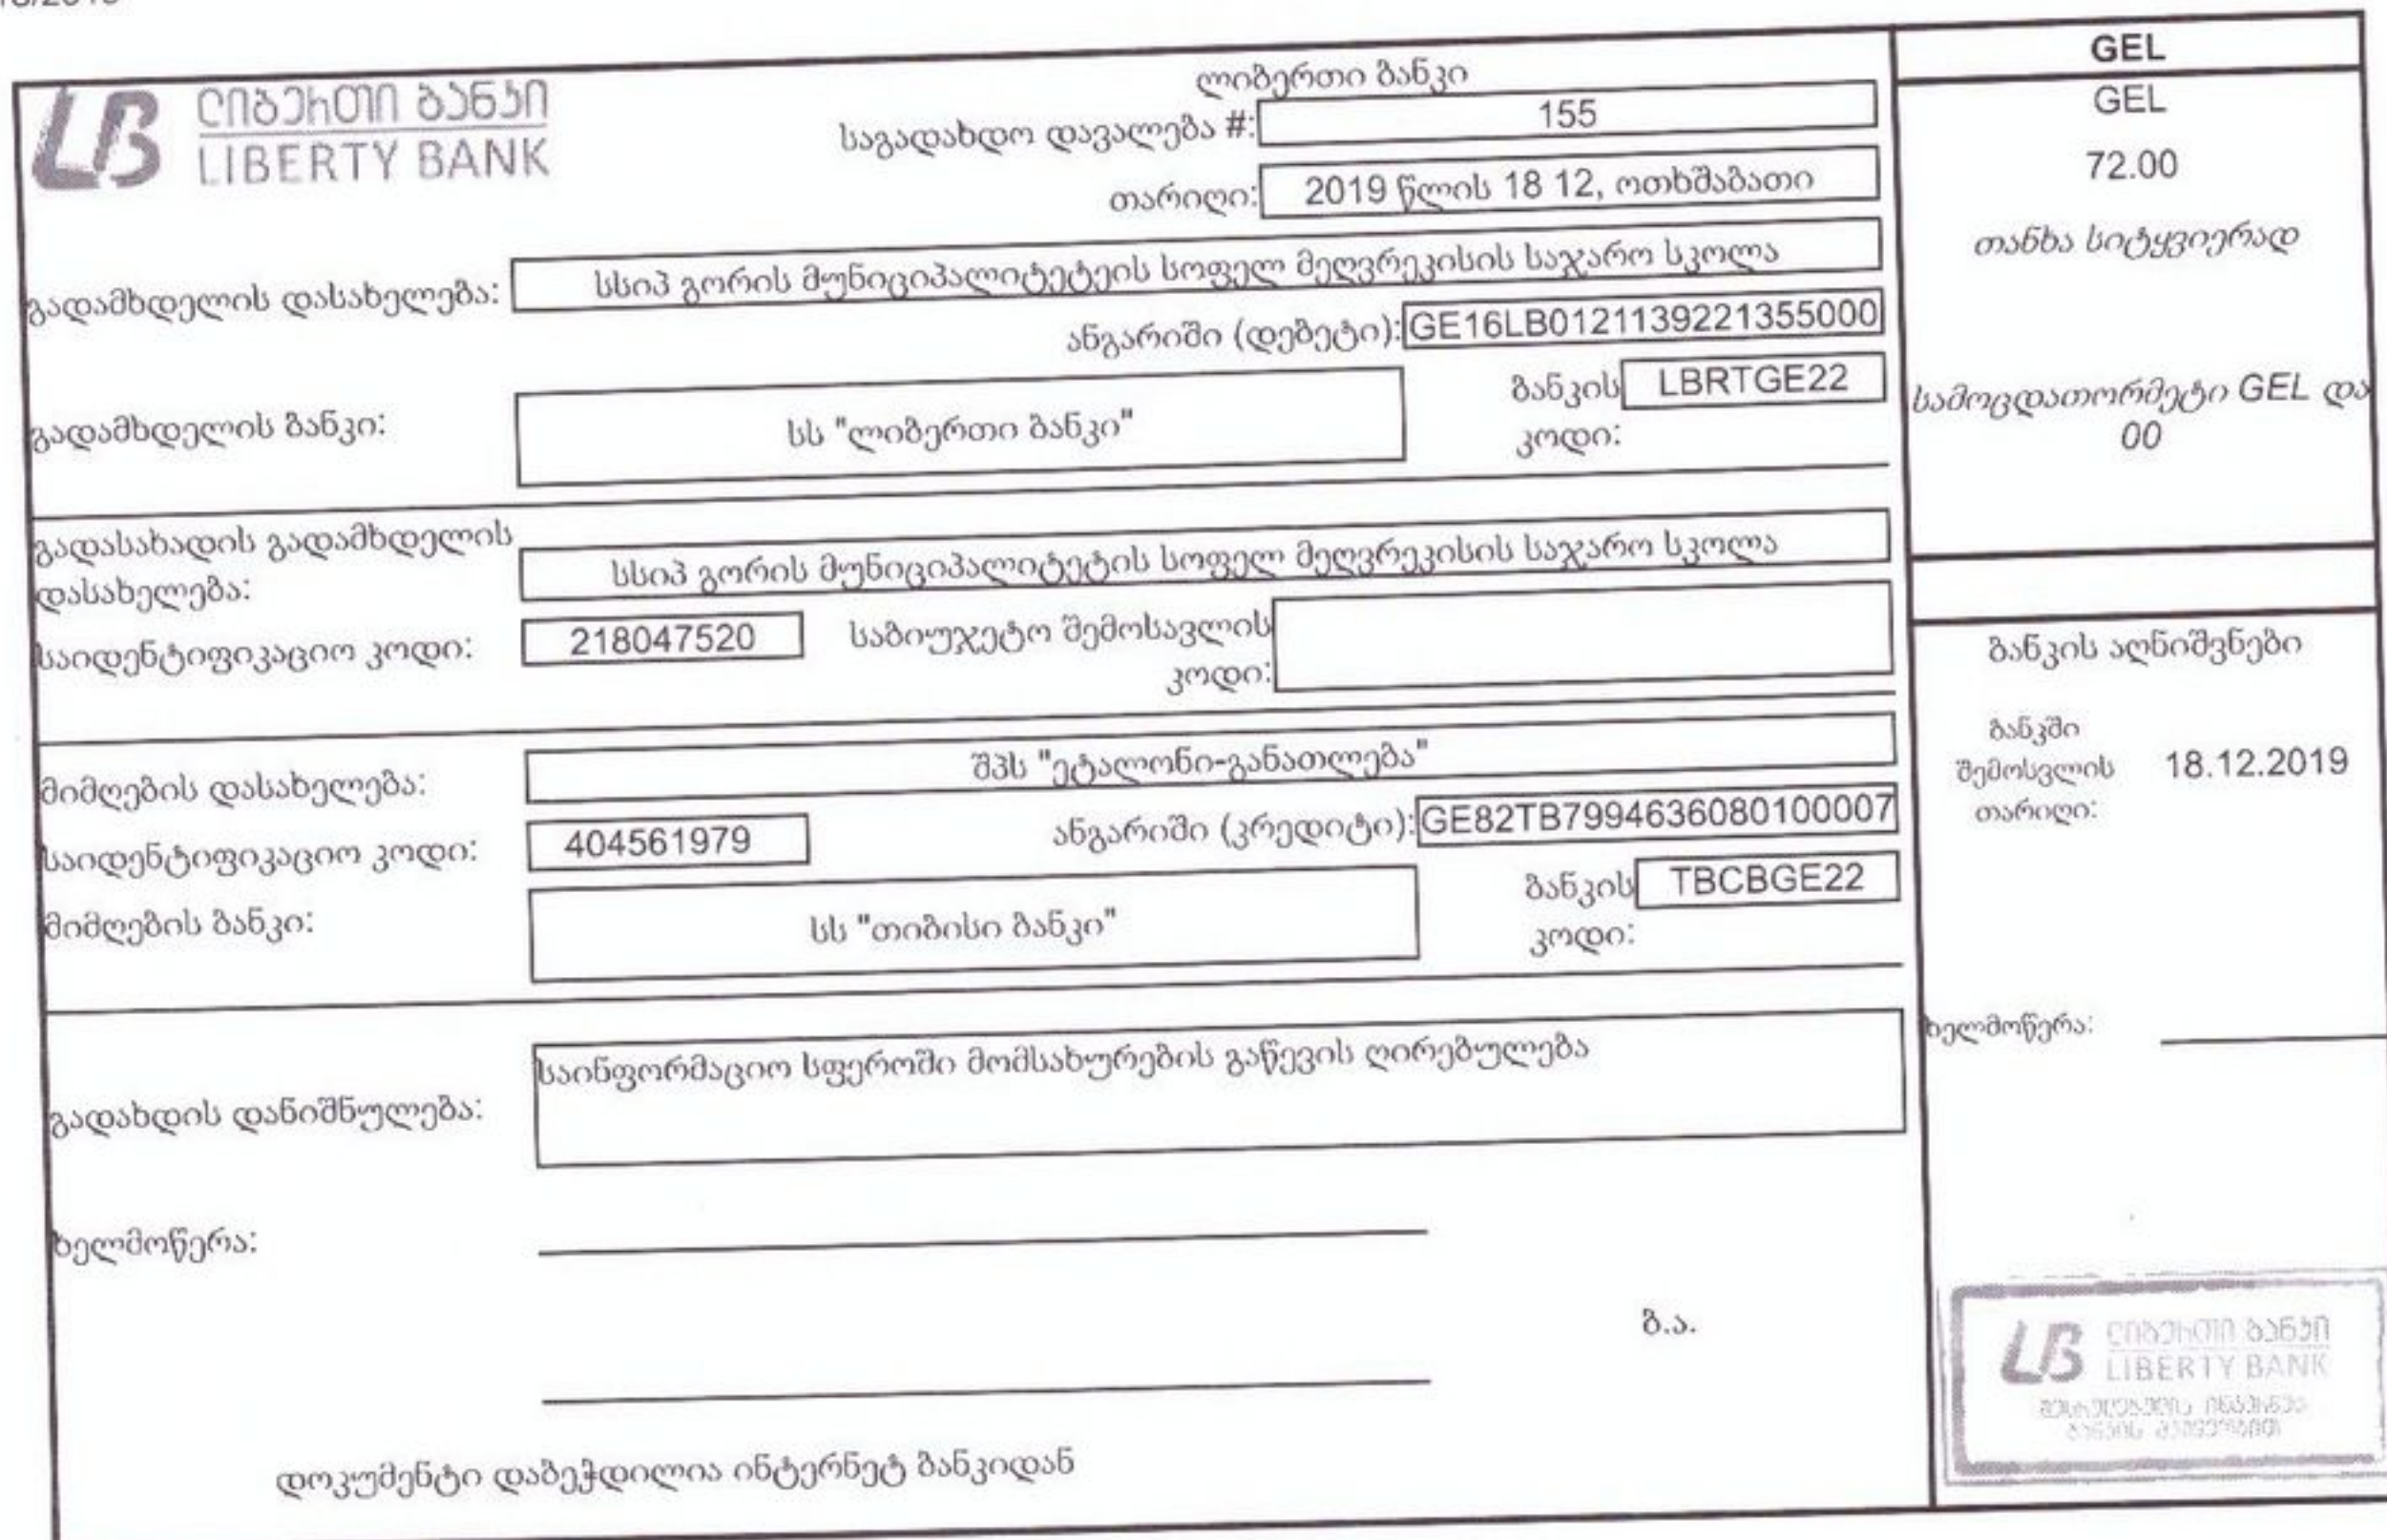 ლიბერთი ბანკი
LIBERTY BANK
ლიბერთი ბანკი
საგადახდო დავალება #: 155
თარიღი: 2019 წლის 18 12, ოთხშაბათი
გადამხდელის დასახელება: სსიპ გორის მუნიციპალიტეტეის სოფელ მეღვრეკისის საჯარო სკოლა
ანგარიში (დებეტი): GE16LB0121139221355000
გადამხდელის ბანკი: სს "ლიბერთი ბანკი"
ბანკის კოდი: LBRTGE22
გადასახადის გადამხდელის
დასახელება: სსიპ გორის მუნიციპალიტეტის სოფელ მეღვრეკისის საჯარო სკოლა
საიდენტიფიკაციო კოდი: 218047520
საბიუჯეტო შემოსავლის
კოდი:
მიმღების დასახელება: შპს "ეტალონი-განათლება"
საიდენტიფიკაციო კოდი: 404561979
ანგარიში (კრედიტი): GE82TB7994636080100007
მიმღების ბანკი: სს "თიბისი ბანკი"
ბანკის კოდი: TBCBGE22
გადახდის დანიშნულება: საინფორმაციო სფეროში მომსახურების გაწევის ღირებულება
ხელმოწერა:
ბ.ა.
დოკუმენტი დაბეჭდილია ინტერნეტ ბანკიდან
GEL
GEL
72.00
თანხა სიტყვიერად
სამოცდათორმეტი GEL და
00
ბანკის აღნიშვნები
ბანკში
შემოსვლის 18.12.2019
თარიღი:
ხელმოწერა:
ლიბერთი ბანკი
LIBERTY BANK